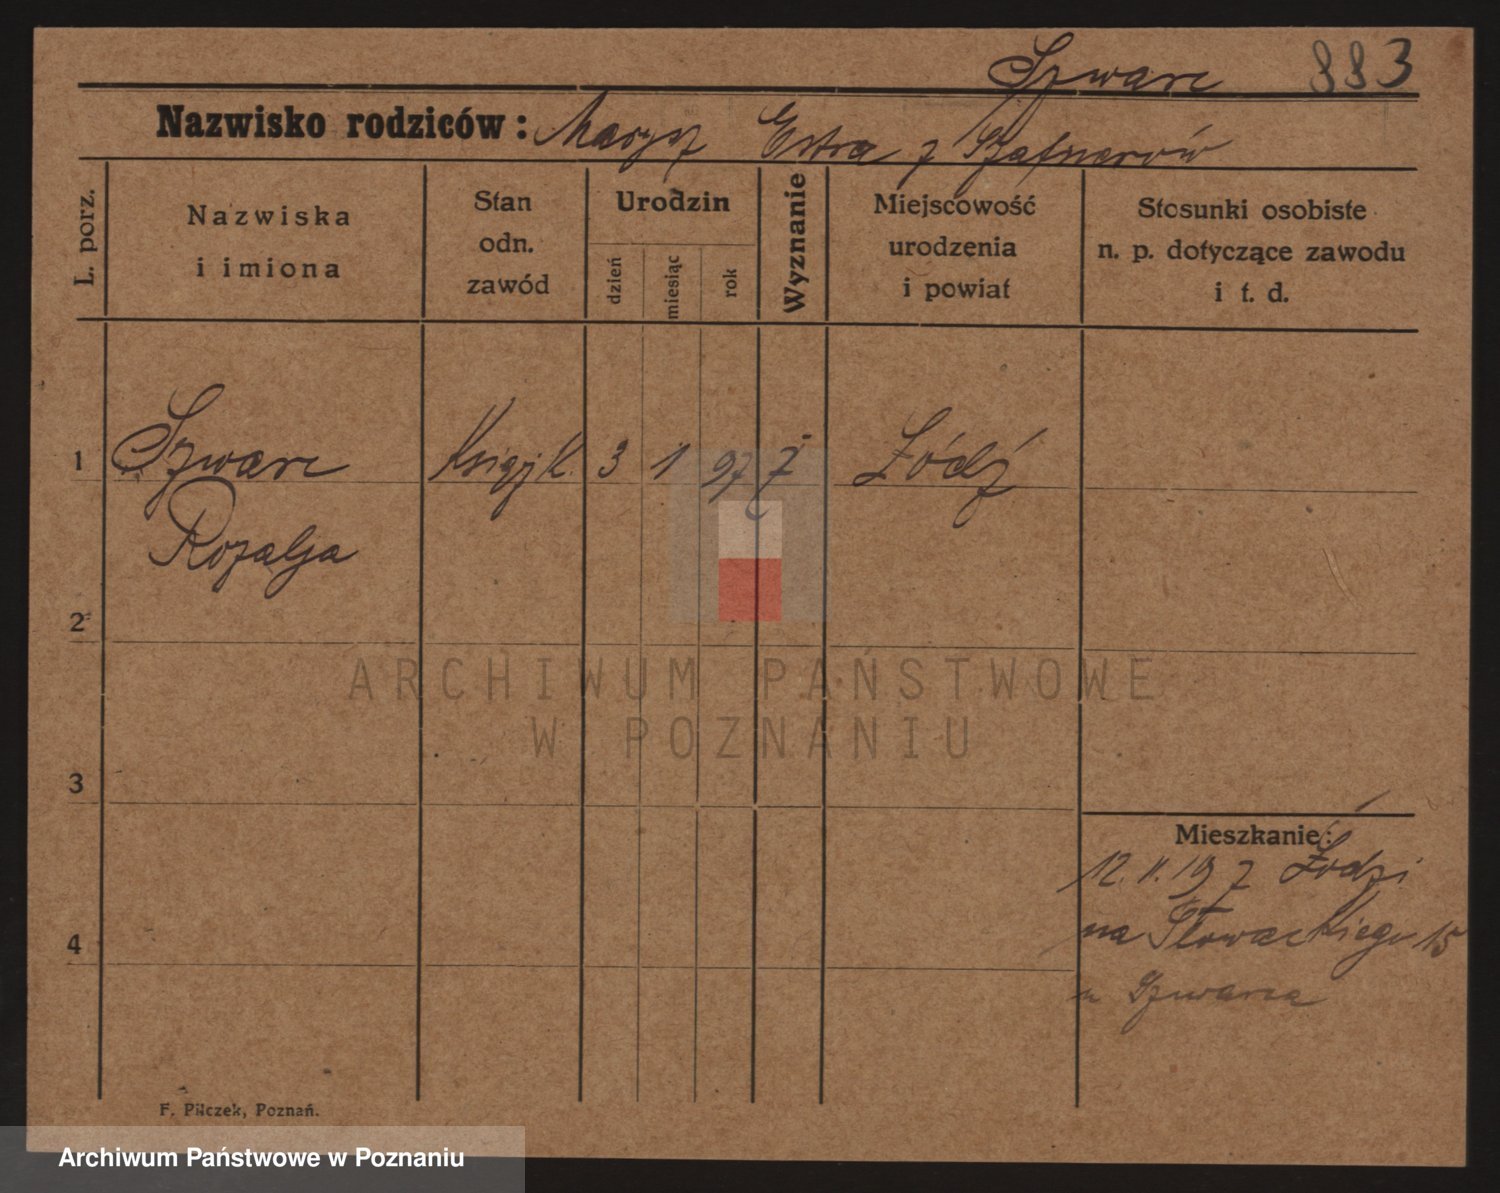 Szwarc 883
Nazwisko rodziców: Maryz Estra z Szafnerów
L. porz.
Nazwiska
i imiona
Stan
odn.
zawód
Urodzin
dzień
miesiąc
rok
Wyznanie
Miejscowość
urodzenia
i powiat
Stosunki osobiste
n. p. dotyczące zawodu
i t. d.
1 Szwarc 3 1 97 ż Łódź
Rozalja
2
3
4
Mieszkanie:
12. II. 19 z Łodzi
na Słowackiego 15
u Szwarca
F. Pilczek, Poznań.
ARCHIWUM PAŃSTWOWE
W POZNANIU
Archiwum Państwowe w Poznaniu